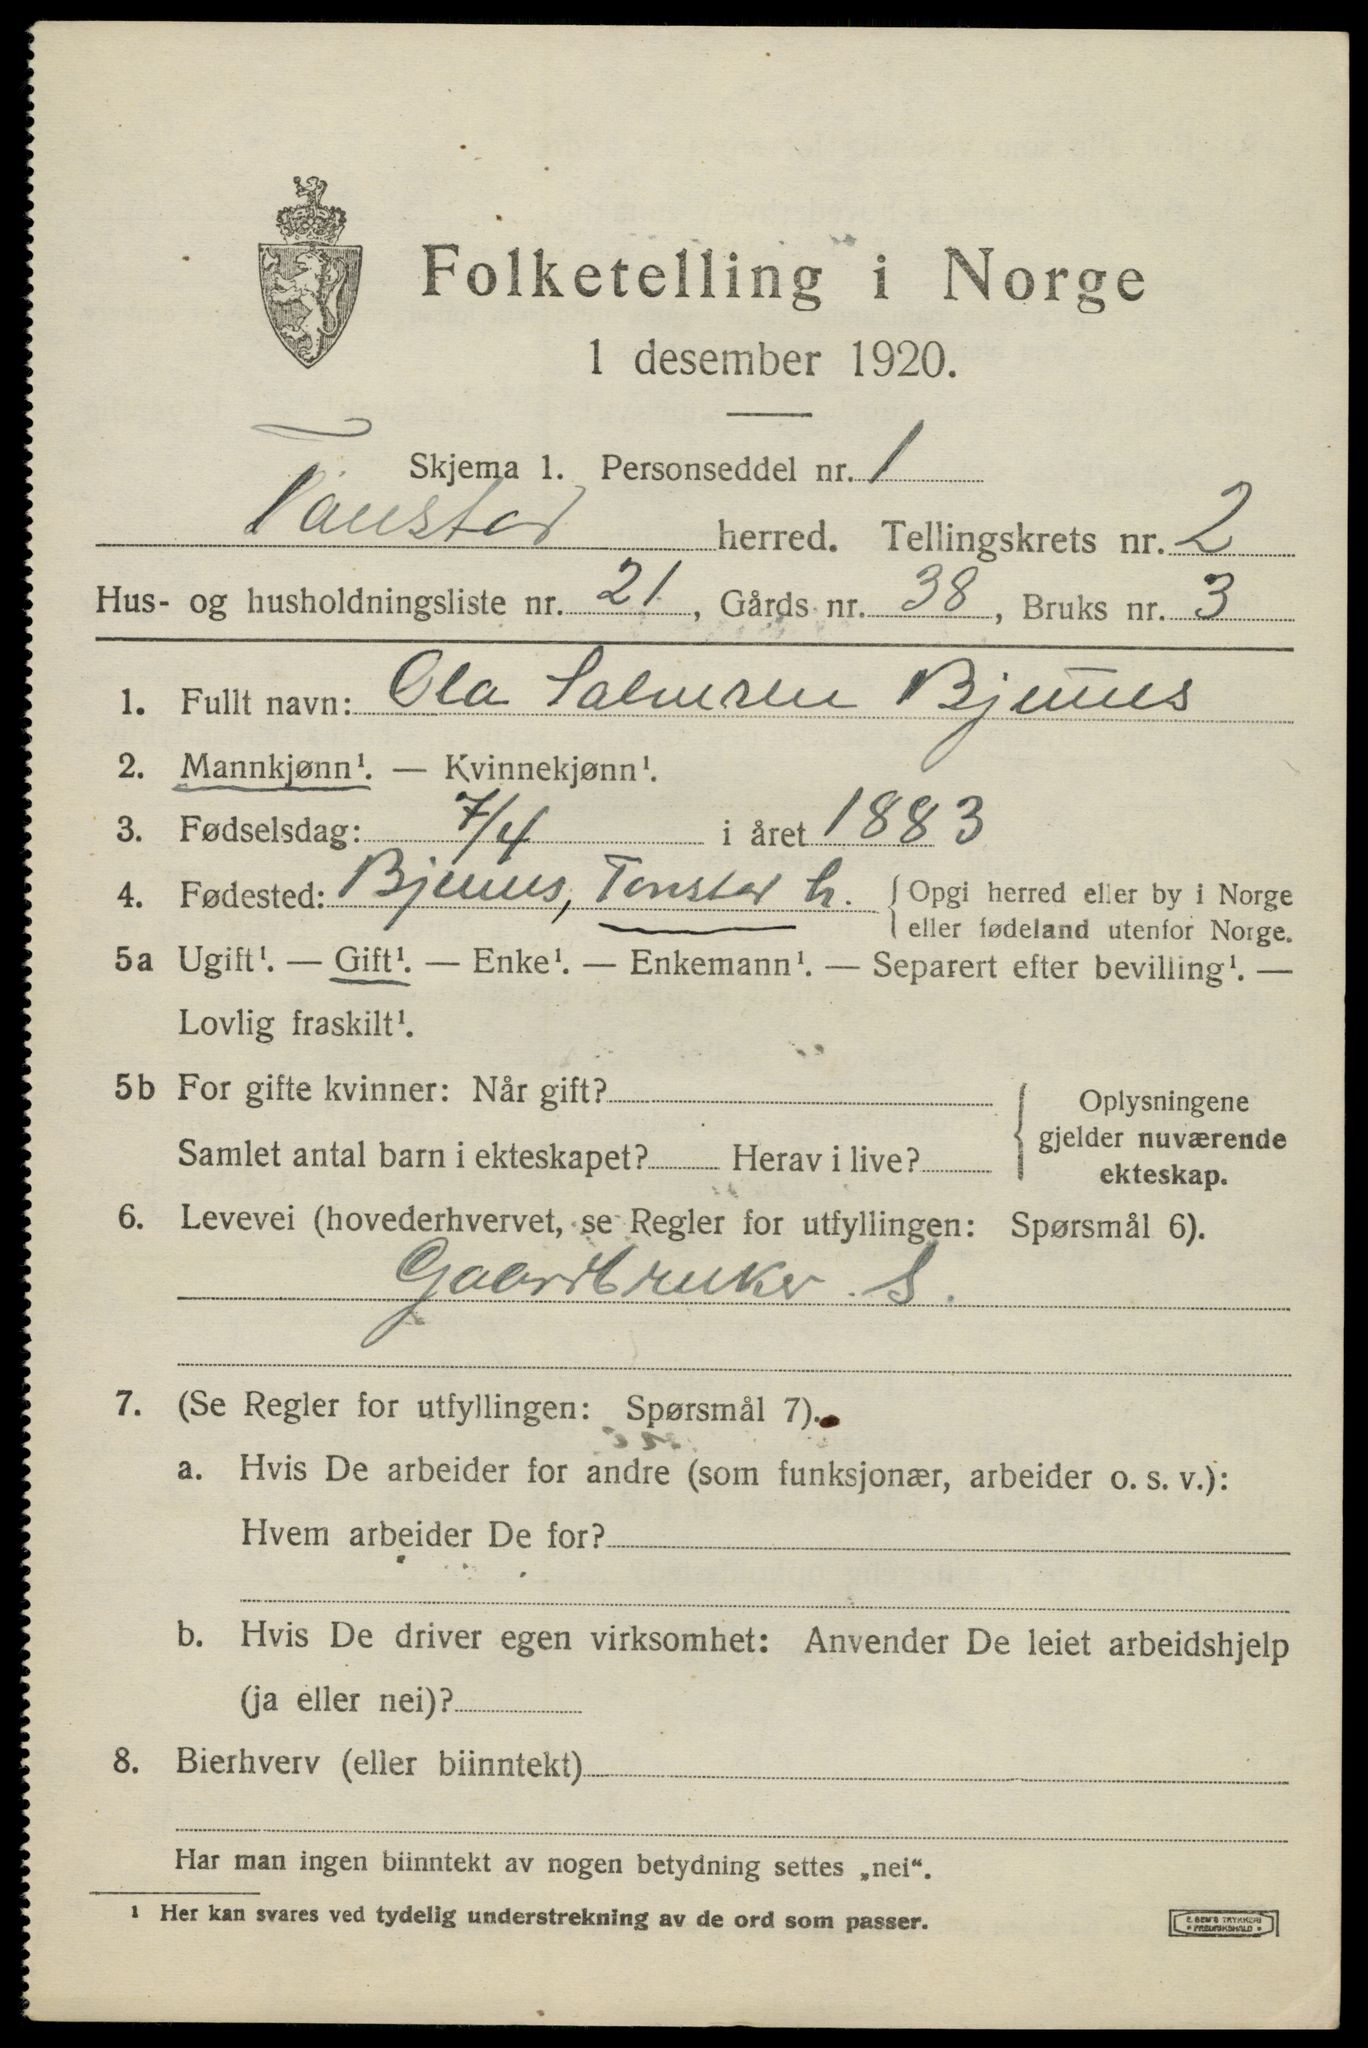 Folketelling i Norge
1 desember 1920.
Skjema 1. Personseddel nr. 1
Tonstad herred. Tellingskrets nr. 2
Hus- og husholdningsliste nr. 21, Gårds nr. 38, Bruks nr. 3
1. Fullt navn: Ola Salvesen
2. Mannkjønn¹. — Kvinnekjønn¹.
3. Fødselsdag: 7/4 i året 1883
4. Fødested: Tonstad h. {Opgi herred eller by i Norge
eller fødeland utenfor Norge.
5a Ugift¹. — Gift¹. — Enke¹. — Enkemann¹. — Separert efter bevilling¹. —
Lovlig fraskilt¹.
5b For gifte kvinner: Når gift? Oplysningene
gjelder nuværende
Samlet antal barn i ekteskapet? Herav i live? ekteskap.
6. Levevei (hovederhvervet, se Regler for utfyllingen: Spørsmål 6).
Gaardbruker. S.
7. (Se Regler for utfyllingen: Spørsmål 7).
a. Hvis De arbeider for andre (som funksjonær, arbeider o. s. v.):
Hvem arbeider De for?
b. Hvis De driver egen virksomhet: Anvender De leiet arbeidshjelp
(ja eller nei)?
8. Bierhverv (eller biinntekt)
Har man ingen biinntekt av nogen betydning settes „nei“.
¹ Her kan svares ved tydelig understrekning av de ord som passer.
E. SEM'S TRYKKERI
FREDRIKSHALD